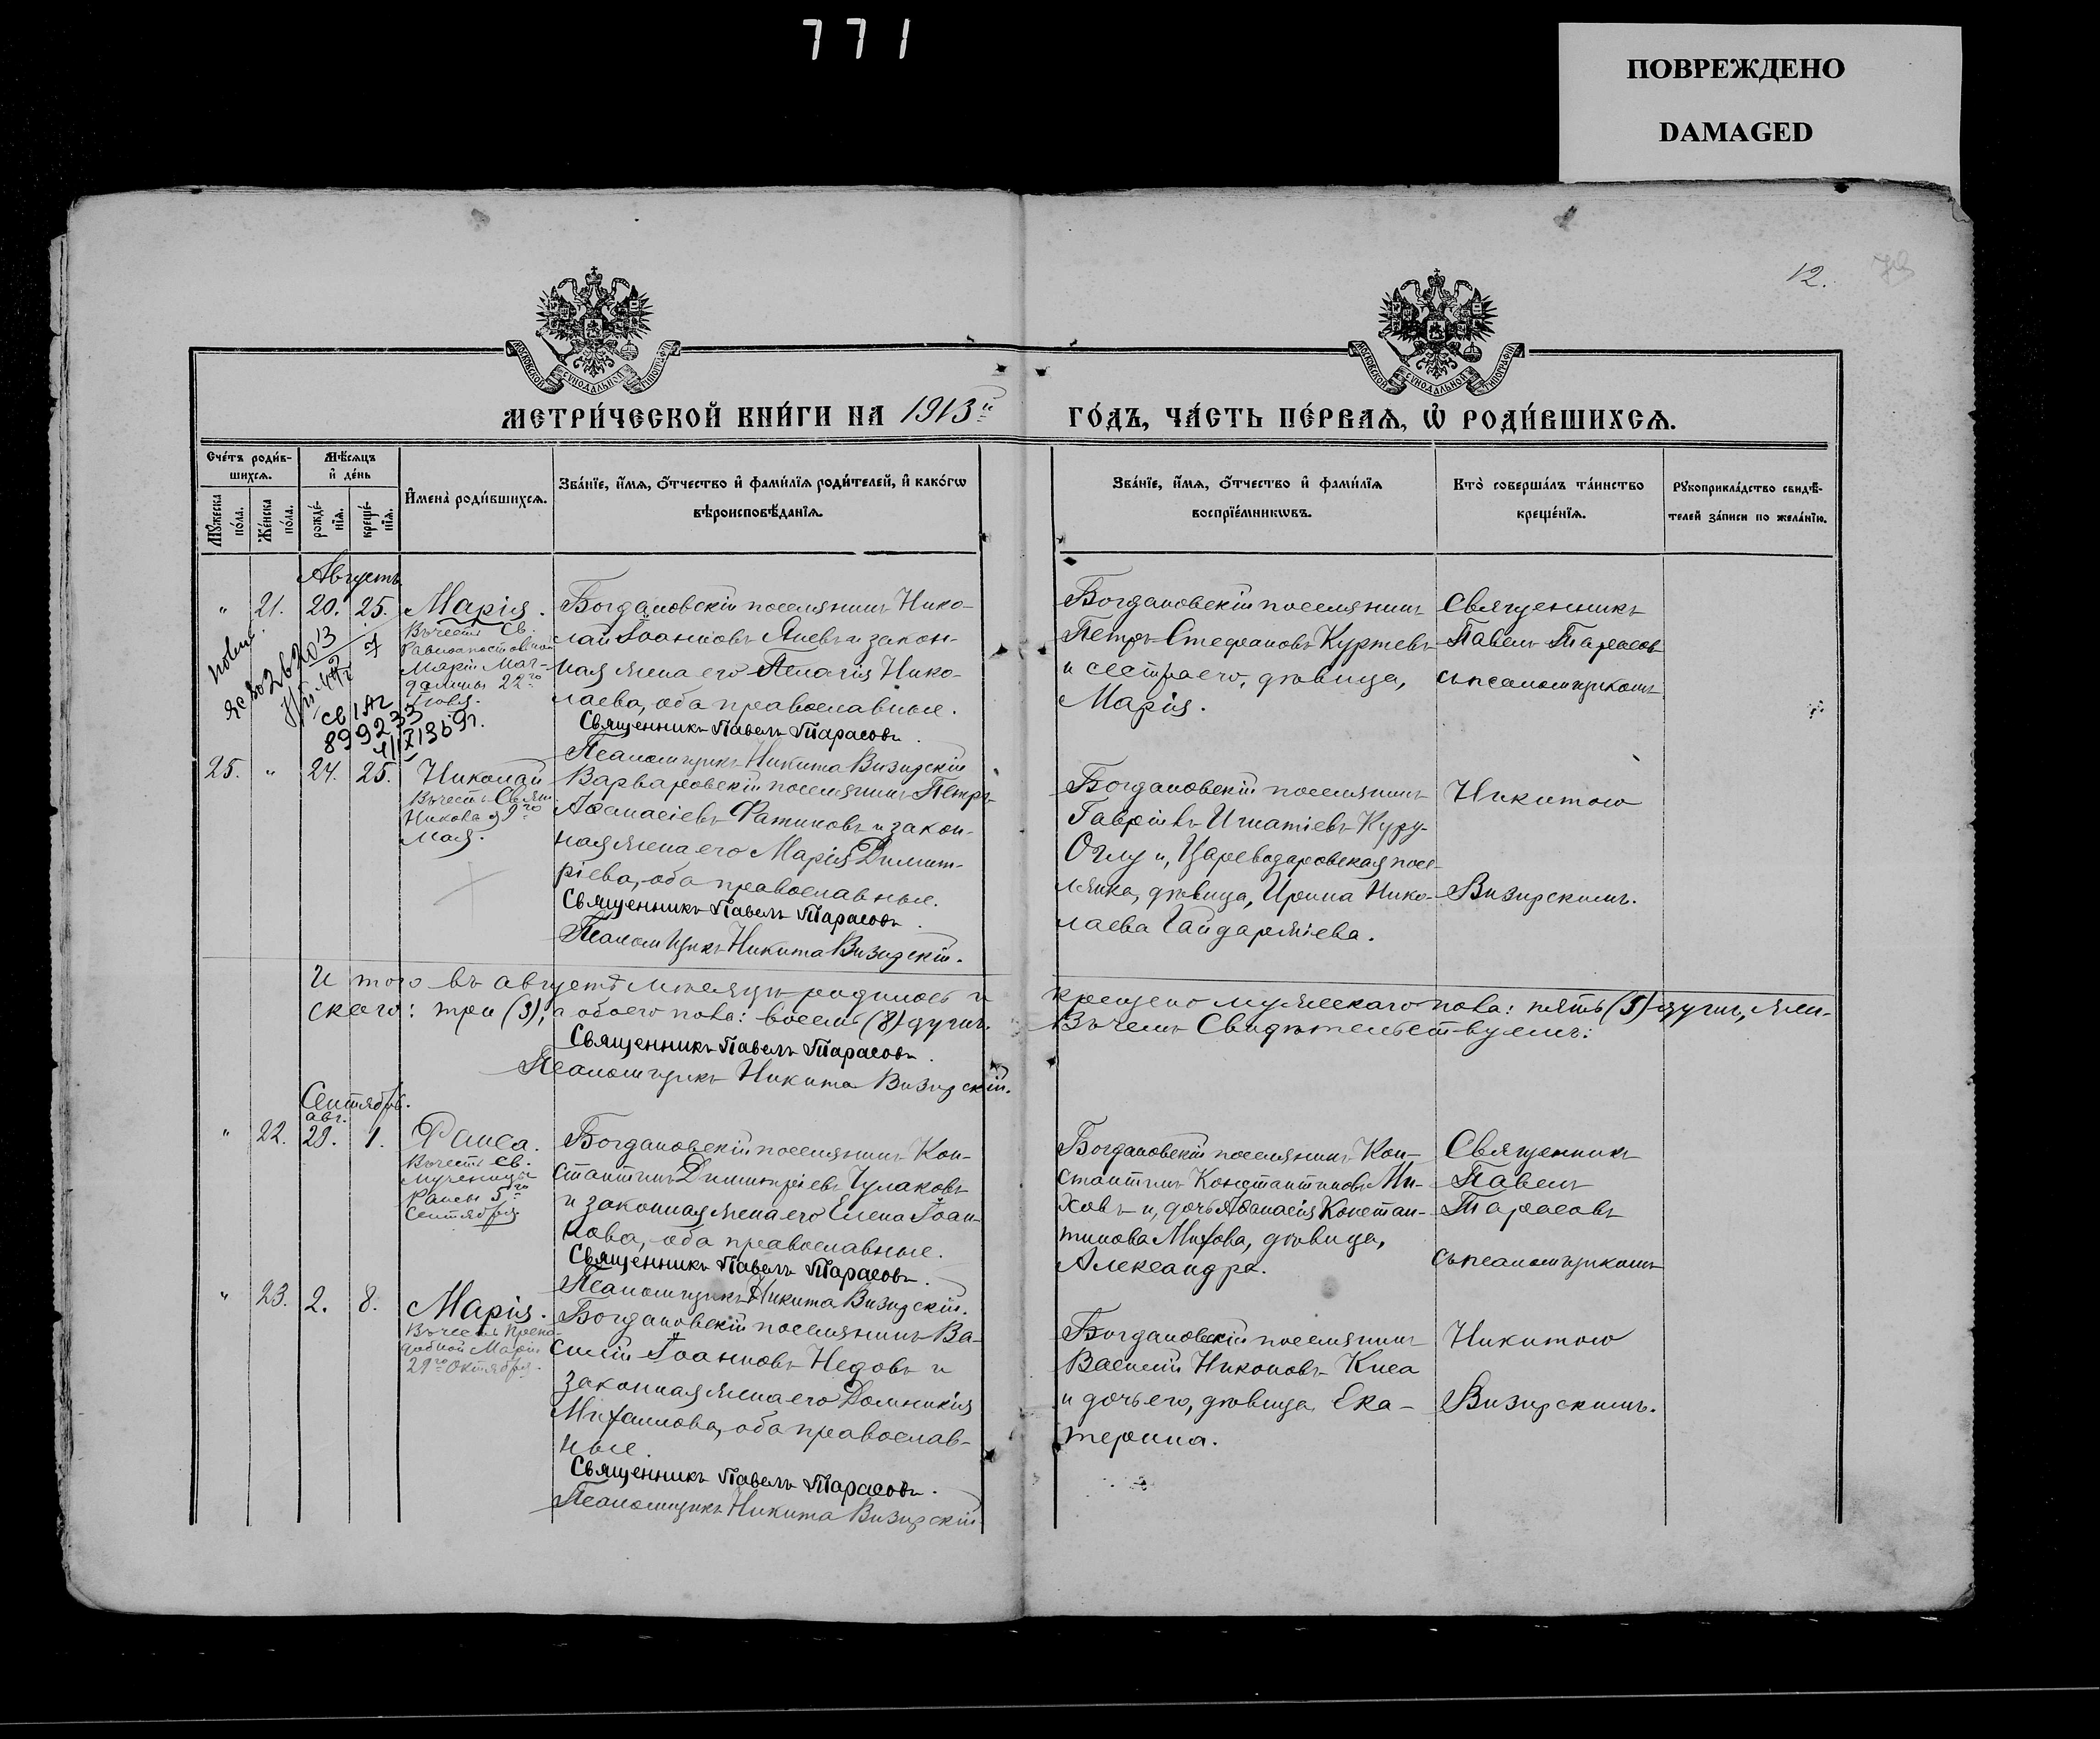 771
ПОВРЕЖДЕНО
DAMAGED
12.
МОСКОВСКОЙ СѴНОДАЛЬНОЙ ТИПОГРАФІИ
МОСКОВСКОЙ СѴНОДАЛЬНОЙ ТИПОГРАФІИ
МЕТРИ́ЧЕСКОЙ КНИ́ГИ НА 1913й
ГО́ДЪ, ЧА́СТЬ ПЕ́РВАѦ, Ѡ҆ РОДИ́ВШИХСѦ.
Сче́тъ роди́в-
шихсѧ.
Мѣ́сѧцъ
и҆ де́нь
Мꙋ́жеска
по́ла.
Же́нска
по́ла.
рожде́-
нїѧ.
креще́-
нїѧ.
И҆мена̀ роди́вшихсѧ.
Зва́нїе, и҆́мѧ, ѻ҆́тчество и҆ фами́лїѧ роди́телей, и҆ како́гѡ
вѣроисповѣ́данїѧ.
Зва́нїе, и҆́мѧ, ѻ҆́тчество и҆ фами́лїѧ
воспрїе́мникѡвъ.
Кто̀ соверша́лъ та́инство
креще́нїѧ.
Рꙋкоприкла́дство свидѣ́-
телей за́писи по жела́нїю.
Августъ
" 21. 20. 25. Марія.
Въ честь Св.
Равноапостольной
Маріи Маг-
далины 22го
Іюля.
899233
Богдановскій поселянинъ Нико-
лай Іоанновъ Яневъ и закон-
ная жена его Пелагія Нико-
лаева, оба православные.
Священникъ Павелъ Тарасовъ.
Псаломщикъ Никита Визирскій
Богдановскій поселянинъ
Петръ Стефановъ Куртевъ
и сестра его, дѣвица,
Марія.
Священникъ
Павелъ Тарасовъ
съ псаломщикомъ
25. " 24. 25. Николай
Въ честь Свят.
Николая 9го
Мая.
Варваровскій поселянинъ Петръ
Аѳанасіевъ Фатиновъ и закон-
ная жена его Марія Димит-
ріева, оба православные.
Священникъ Павелъ Тарасовъ.
Псаломщикъ Никита Визирскій.
Богдановскій поселянинъ
Гавріилъ Игнатіевъ Куру-
Оглу и, Царевдаровская посе-
лянка, дѣвица, Ирина Нико-
лаева Гайдаржіева.
Никитою
Визирскимъ.
Итого въ августѣ мѣсяцѣ родилось и
крещено мужескаго пола: пять (5) душъ, жен-
скаго: три (3), а обоего пола: восемь (8) душъ.
Въ чемъ Свидѣтельствуемъ:
Священникъ Павелъ Тарасовъ.
Псаломщикъ Никита Визирскій.
Сентябрь.
авг.
" 22. 29. 1. Раиса.
Въ честь Св.
мученицы
Раисы 5го
Сентября
Богдановскій поселянинъ Кон-
стантинъ Димитріевъ Чулаковъ
и законная жена его Елена Іоан-
нова, оба православные.
Священникъ Павелъ Тарасовъ.
Псаломщикъ Никита Визирскій.
Богдановскій поселянинъ Кон-
стантинъ Константиновъ Ми-
ховъ и, дочь Аѳанасія Констан-
тинова Михова, дѣвица,
Александра.
Священникъ
Павелъ
Тарасовъ
съ псаломщикомъ
" 23. 2. 8. Марія.
Въ честь Препо-
добной Маріи
29го Октября.
Богдановскій поселянинъ Ва-
силій Іоанновъ Недовъ и
законная жена его Домникія
Михаилова, оба православ-
ные.
Священникъ Павелъ Тарасовъ.
Псаломщикъ Никита Визирскій
Богдановскій поселянинъ
Василій Никоновъ Киса
и дочь его, дѣвица Ека-
терина.
Никитою
Визирскимъ.